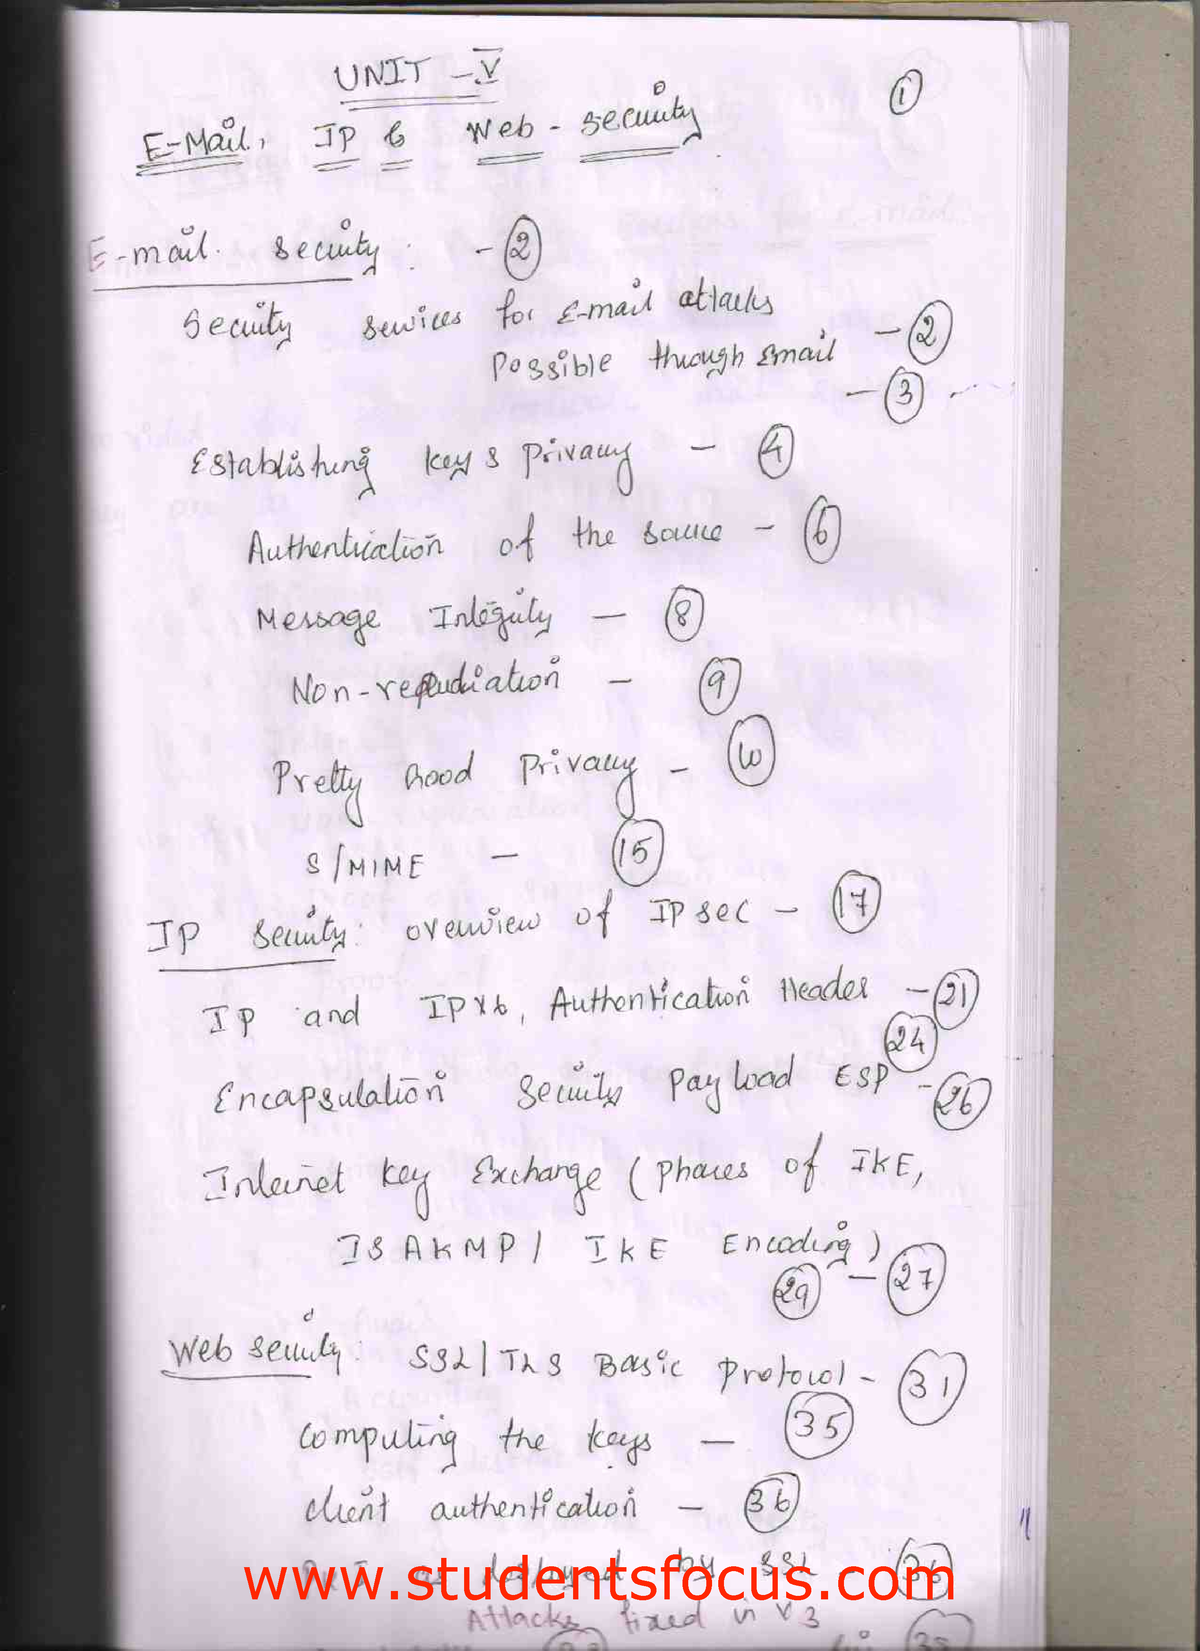 UNIT - V
1
E-Mail, IP & Web - Security
E-mail Security: - 2
Security Services for E-mail attacks
Possible through Email - 2
- 3
Establishing keys Privacy - 4
Authentication of the source - 6
Message Integrity - 8
Non-repudiation - 9
Pretty Good Privacy - 10
S/MIME - 15
IP Security: overview of IPsec - 17
IP and IPV6, Authentication Header - 21
24
Encapsulation Security Payload ESP - 26
Internet Key Exchange (Phases of IKE,
ISAKMP/ IKE Encoding)
29 - 27
Web Security: SSL/TLS Basic Protocol - 31
Computing the keys - 35
client authentication - 36
PKI as deployed by SSL
www.studentsfocus.com
Attacks fixed in V3